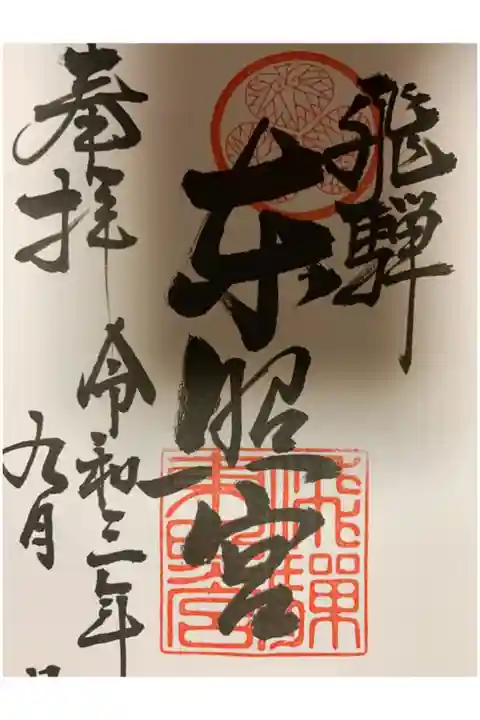 飛騨
東照宮
奉拝
令和三年
九月
飛騨
東照宮